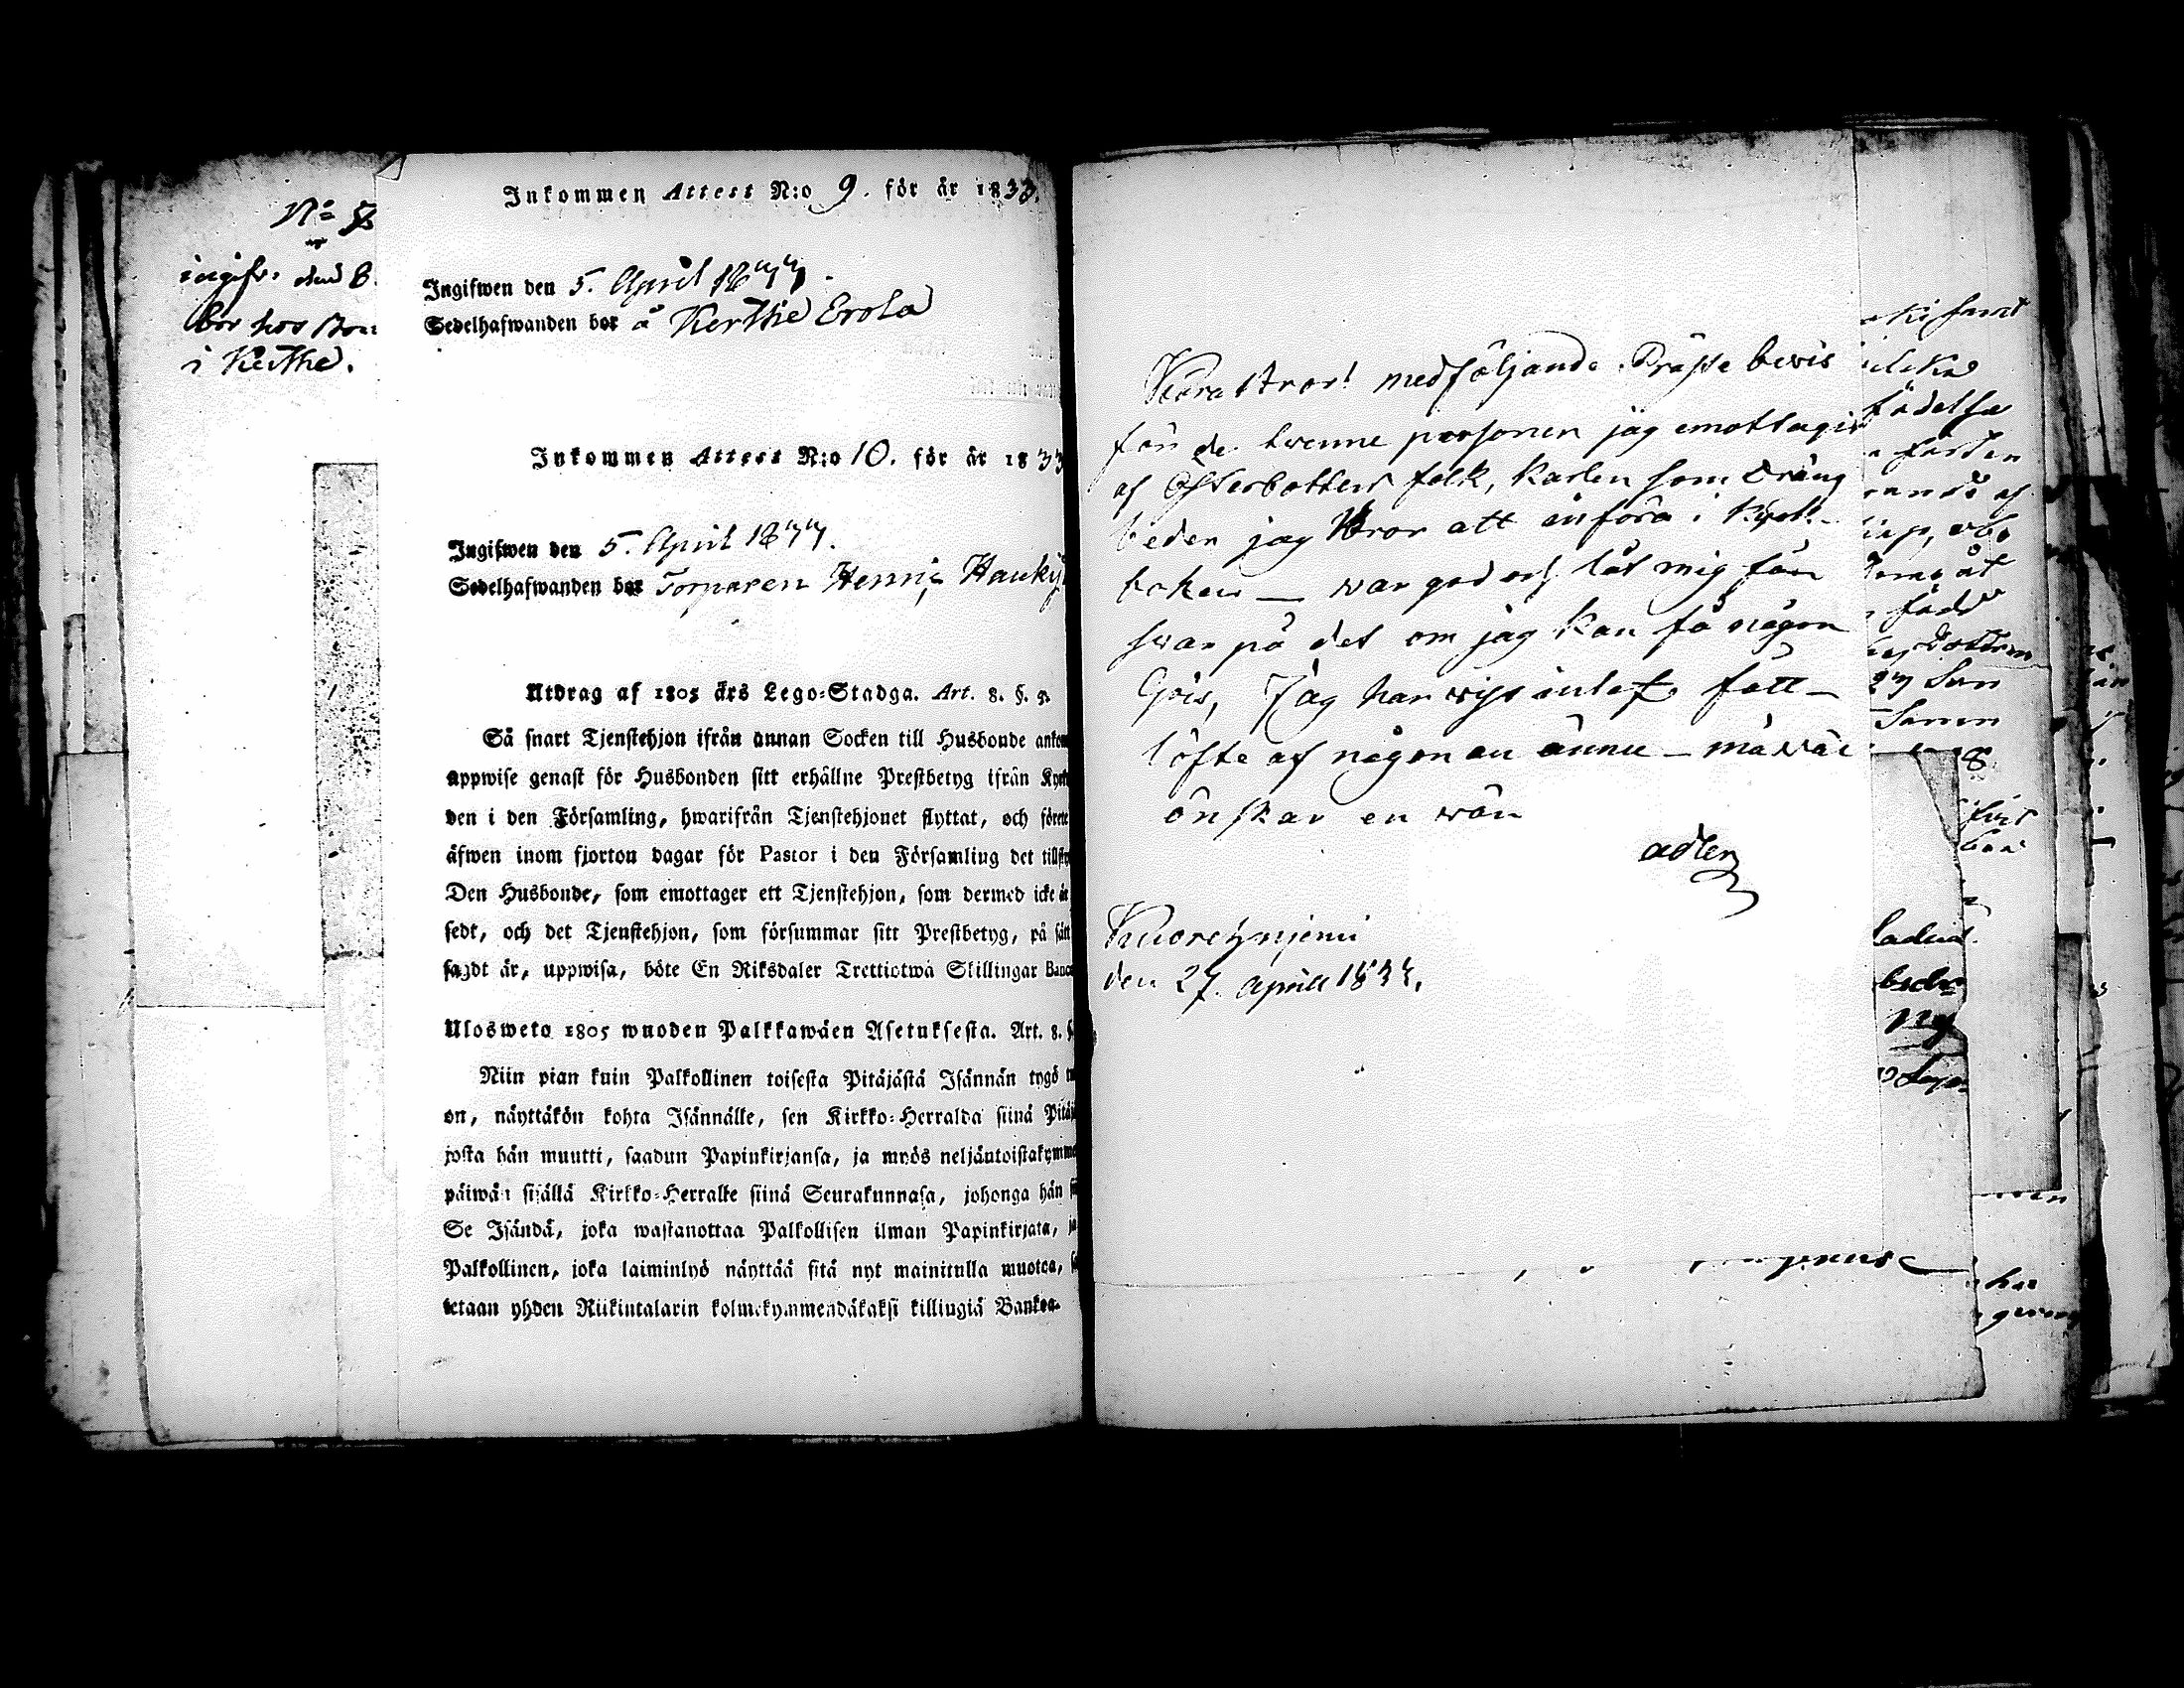 N:o 8
ingifv. den 8.
bor hos Bon
i Kerthe.
Inkommen Attest N:o 9. för år 1833.
Ingifwen den 5. April 1833.
Sedelhafwanden bor å Kerthe Erola
Inkommen Attest N:o 10. för år 1833
Ingifwen den 5. April 1833.
Sedelhafwanden bor Torparen Henric Hauky
Utdrag af 1805 års Lego-Stadga. Art. 8. §. 5.
Så snart Tjenstehjon ifrån annan Socken till Husbonde ankom
uppwise genast för Husbonden sitt erhållne Prestbetyg ifrån Kyrk
den i den Församling, hwarifrån Tjenstehjonet flyttat, och förete
äfwen inom fjorton dagar för Pastor i den Församling det tillfly
Den Husbonde, som emottager ett Tjenstehjon, som dermed icke är
sedt, och det Tjenstehjon, som försummar sitt Prestbetyg, på sätt
sagdt är, uppwisa, böte En Riksdaler Trettiotwå Skillingar Banco
Ulosweto 1805 wuoden Palkkawäen Asetuksesta. Art. 8. §.
Niin pian kuin Palkollinen toisesta Pitäjästä Isännän tygö tu
on, näyttäkön kohta Isännälle, sen Kirkko-Herralda siinä Pitäjä
josta hän muutti, saadun Papinkirjansa, ja myös neljäntoistakymme
päiwän sisällä Kirkko-Herralle siinä Seurakunnasa, johonga hän
Se Isändä, joka wastanottaa Palkollisen ilman Papinkirjata, ja
Palkollinen, joka laiminlyö näyttää sitä nyt mainitulla muotoa,
tetaan yhden Riikintalarin kolmekymmendäkaksi killingiä Bankoa.
Kära Bror! medföljande Präste bevis
för de tvenne personer jag emottagit
af Österbottens folk, karlen som Dräng
beder jag Bror att införa i Kyrk-
boken — var god och låt mig får
svar på det om jag kan få någon
Göis, Jag har visst intet fått
löfte af någon an ännu — må väl
önskar en vän
adlen
Kuorehynjemi
den 27. Aprill 1833.
oki samt
fädelse
rande af
född
dottren
Son
8
ladud.
Ny